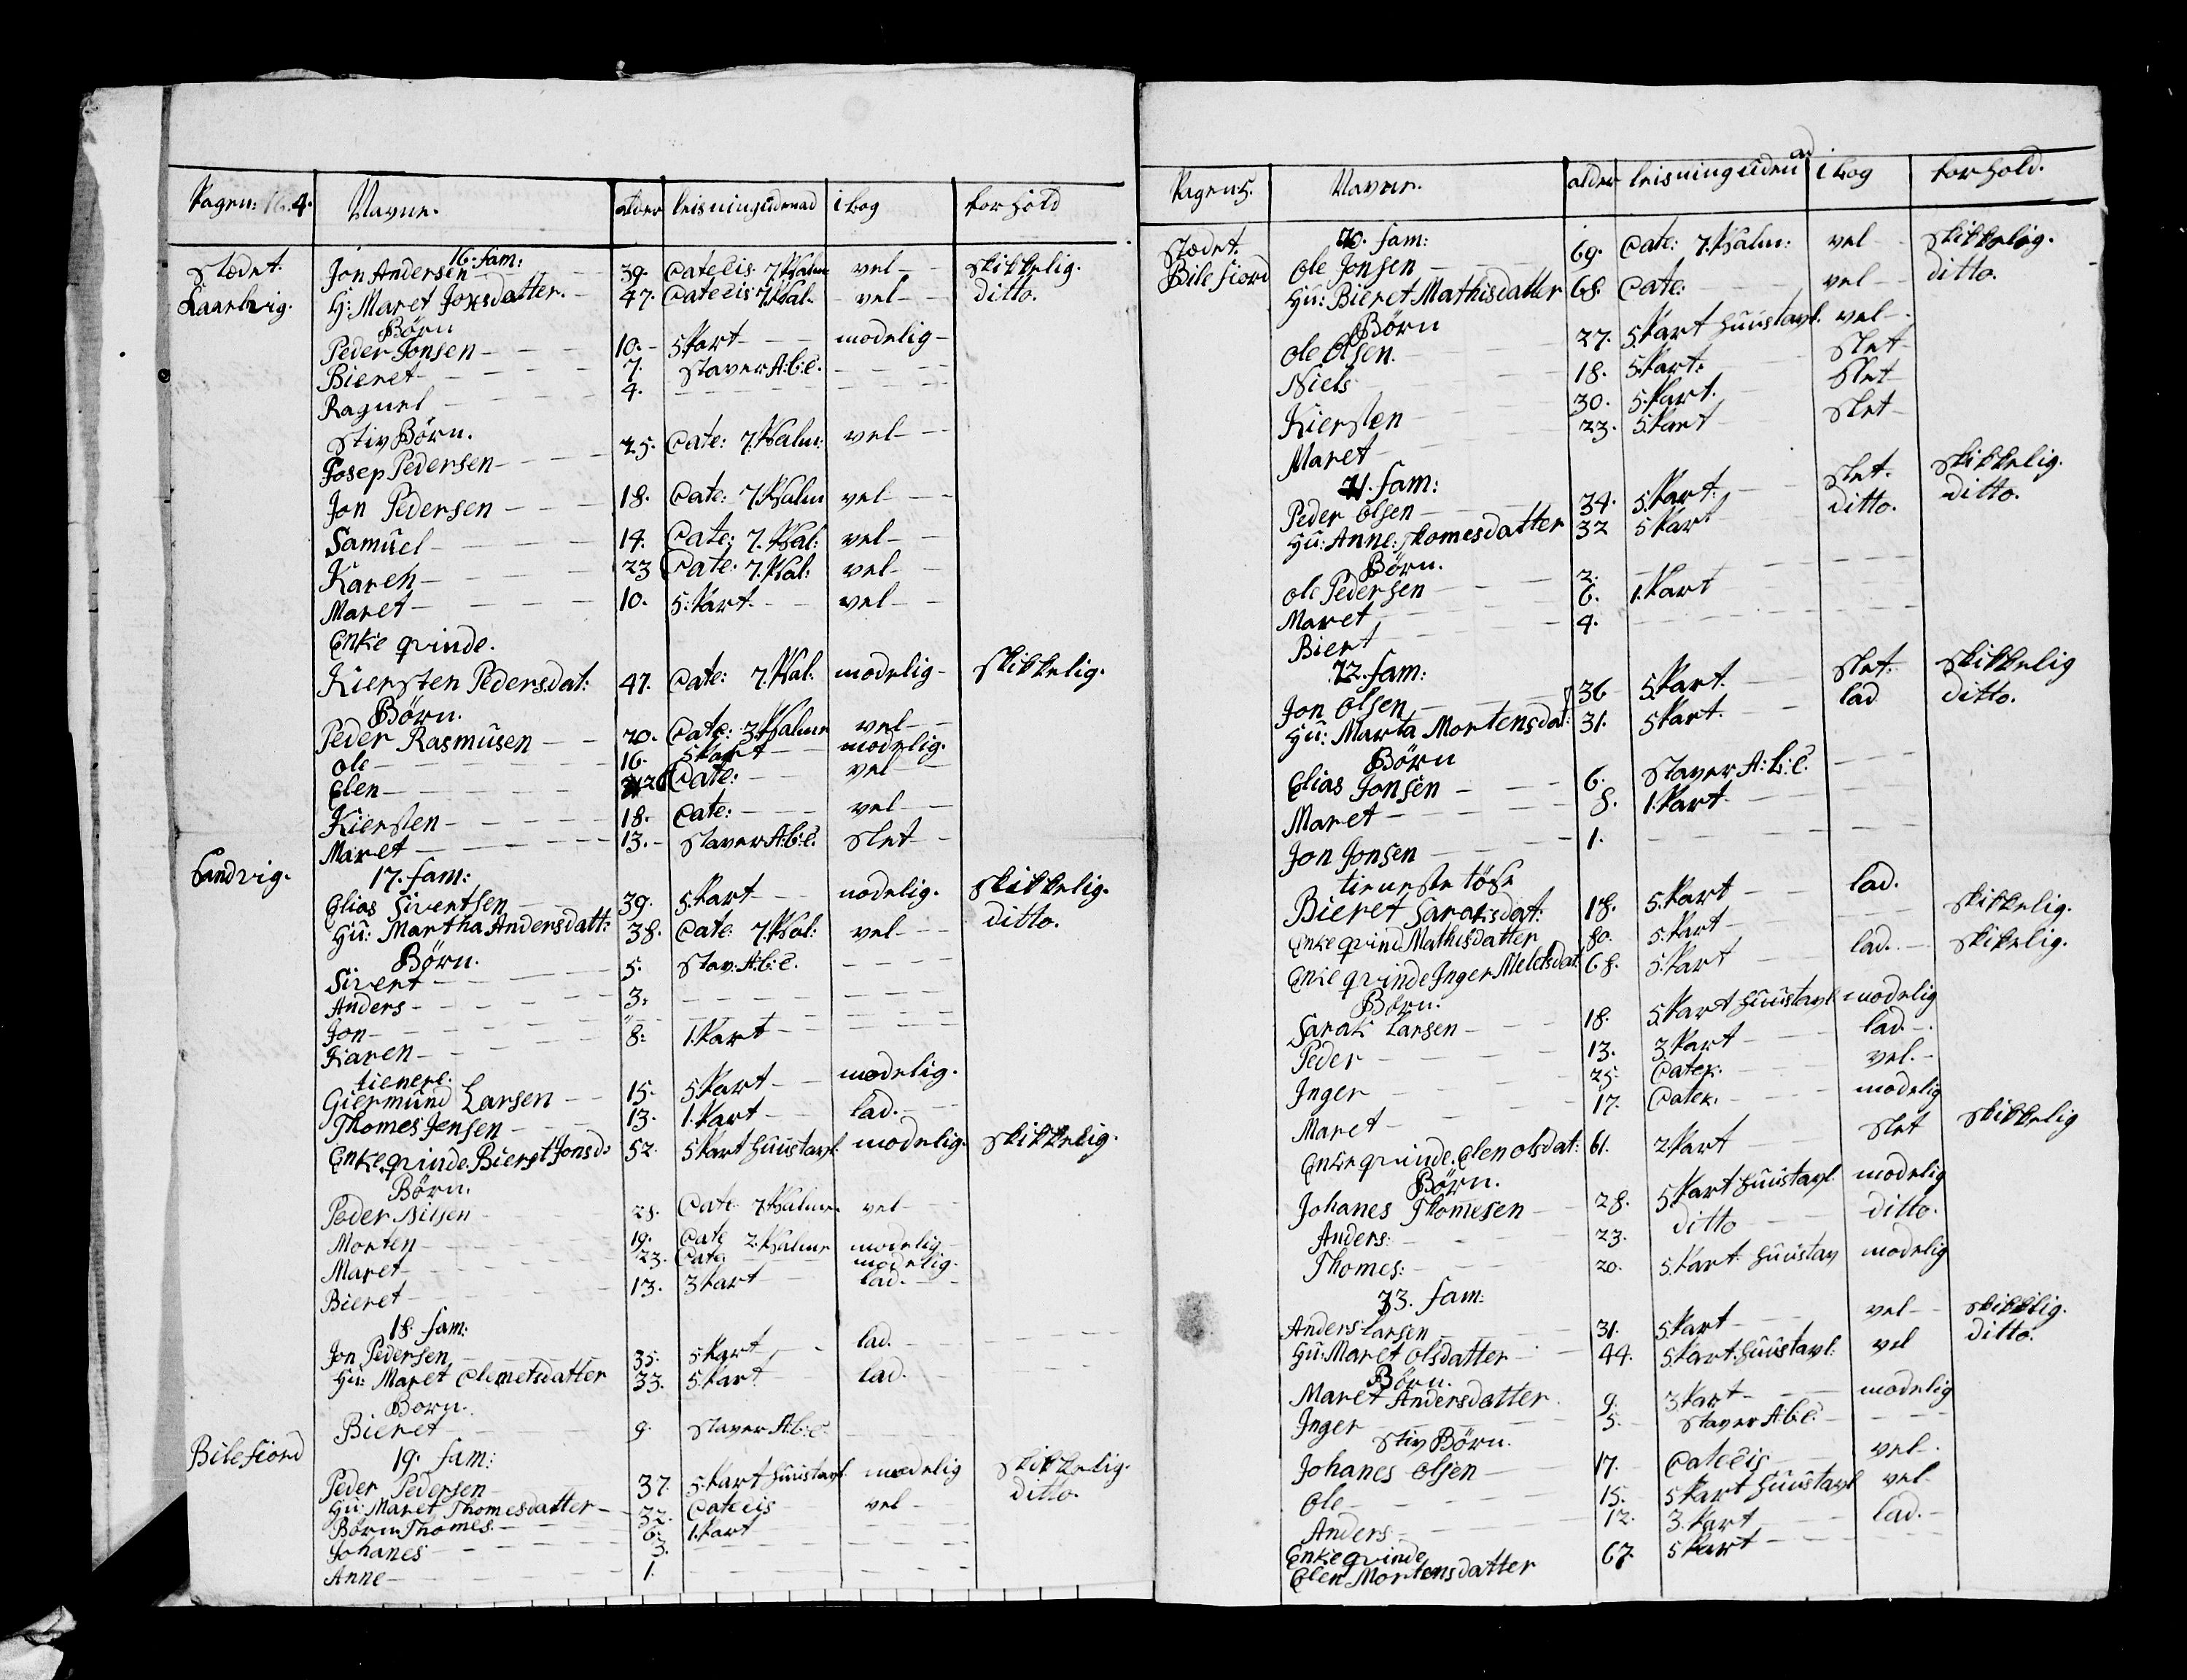 Pagen: No. 4. Navne. alder leisning udenad i bog forhold
16. fam:
Stædet. Jon Andersen 39. Catecis 7. Psalm vel skikkelig.
Laarhvig. H: Maret Jonsdatter. 47. Catecis 7. Psal. vel ditto.
Börn
Peder Jonsen 10. 5 Part modelig
Bieret 7. staver A:b:c.
Ragnel 4.
Stiv Börn.
Josep Pedersen 25. Cate: 7. Psalm: vel
Jon Pedersen 18. Cate: 7. Psalm vel
Samuel 14. Cate: 7. Psal: vel
Karen 23 Cate: 7. Psal: vel
Maret 10. 5. Part. vel
Enke qvinde.
Kiersten Pedersdat: 47. Cate: 7. Psal: modelig skikkelig.
Börn.
Peder Rasmusen 20. Cate: 3. Psalme vel
Ole 16. 5 Part modelig.
Elen 26 Cate: vel
Kiersten 18. Cate: vel
Maret 13. staver A:b:c. slet
Sandvig. 17. fam:
Elias Sivertsen 39. 5. Part modelig. skikkelig.
Hu: Martha Andersdatt: 38. Cate: 7. Psal: vel ditto.
Börn.
Sivert 5. stav: A:b:c.
Anders 3.
Jon "
Karen 8: 1. Part
tienere.
Giermund Larsen 15. 5 Part modelig.
Thomes Jensen 13. 1. Part lad.
Enke qvinde. Bieret Jonsd: 52. 5 Part huustavl. modelig. skikkelig.
Börn.
Peder Nilsen 28. Cate 7. Psalme vel
Morten 19. Cate 2. Psalme modelig
Maret 23. Cate. modelig.
Bieret 13. 3 Part lad.
18. fam:
Jon Pedersen 35. 5 Part lad.
Hu: Maret Clemetsdatter 33. 5. Part lad.
Börn.
Bieret 9. staver A:b:c
Bilefiord 19. fam:
Peder Pedersen 37. 5. Part huustavl modelig skikkelig.
Hu: Maret Thomesdatter 32. Catecis vel ditto.
Börn Thomes. 6: 1. Part
Johanes 3.
Anne 1.
Pagen 5. Navne. alder leisning uden ad i bog forhold.
20. fam:
Stædet. Ole Jonsen 69. Cate: 7. Psalm: vel skikkelig.
Bilefiord Hu: Bieret Mathisdatter 68. Cate: vel ditto.
Börn
Ole Olsen. 27. 5 Part huustavl. vel
Niels 18. 5. Part: slet
Kiersten 30. 5. Part. slet
Maret 23. 5. Part slet
21. fam:
Peder Olsen 34. 5. Part. slet. skikkelig.
Hu: Anne Thomesdatter 32 5 Part ditto. ditto.
Börn.
Ole Pedersen 2.
Maret 6. 1. Part
Biert 4.
22. fam:
Jon Olsen 36 5. Part. slet: skikkelig
Hu: Marta Mortensdat: 31. 5 Part. lad ditto.
Börn
Elias Jonsen 6. staver A:b:c.
Maret 8. 1. Part
Jon Jonsen 1.
tieneste töse
Bieret Sarakisdat: 18. 5. Part lad.
Enke qvinde Mathisdatter 80. 5. Part skikkelig.
Enke qvinde Inger 68. 5. Part lad. skikelig.
Börn:
Sarak Larsen 18. 5. Part huustavl modelig
Peder 13. 3. Part lad.
Inger 25. Catek: vel.
Maret 17. Catek. modelig
Enke qvinde. Elen Olsdat: 61. 2. Part slet skikkelig
Börn.
Johanes Thomesen 28. 5. Part huustavl modelig
Anders: 23. ditto ditto.
Thomes: 20. 5. Part. huustav modelig
23. fam:
Anders Larsen 31. 5 Part vel skikkelig.
Hu: Maret Olsdatter 44. 5 Part: huustavl: vel ditto.
Börn.
Maret Andersdatter. 9. 3 Part modelig
Inger 5. staver A:b:c.
Stiv Börn.
Johanes Olsen 17. Catecis vel
Ole 15. 5 Part huustavl vel
Anders 12. 3. Part lad.
Enke qvinde
Elen Mortensdatter 67. 5 Part